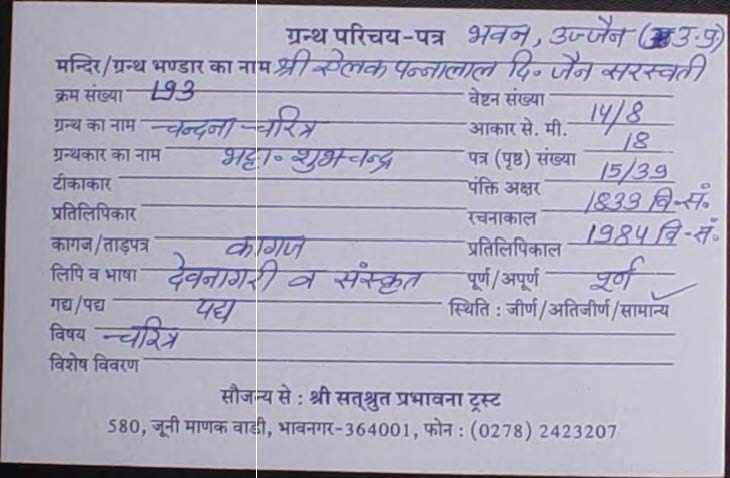 ग्रन्थ परिचय-पत्र भवन, उज्जैन (उ.प्र.)
मन्दिर/ग्रन्थ भण्डार का नाम श्री ऐलक पन्नालाल दि० जैन सरस्वती
क्रम संख्या 193 वेष्टन संख्या
ग्रन्थ का नाम चन्दना चरित्र आकार से. मी. 14/8
ग्रन्थकार का नाम भट्टा० शुभचन्द्र पत्र (पृष्ठ) संख्या 18
टीकाकार पंक्ति अक्षर 15/39
प्रतिलिपिकार रचनाकाल 1833 वि-सं०
कागज/ताड़पत्र कागज प्रतिलिपिकाल 1984 वि-सं०
लिपि व भाषा देवनागरी व संस्कृत पूर्ण/अपूर्ण पूर्ण
गद्य/पद्य पद्य स्थिति : जीर्ण/अतिजीर्ण/सामान्य
विषय चरित्र
विशेष विवरण
सौजन्य से : श्री सत्श्रुत प्रभावना ट्रस्ट
580, जूनी माणक वाडी, भावनगर-364001, फोन : (0278) 2423207